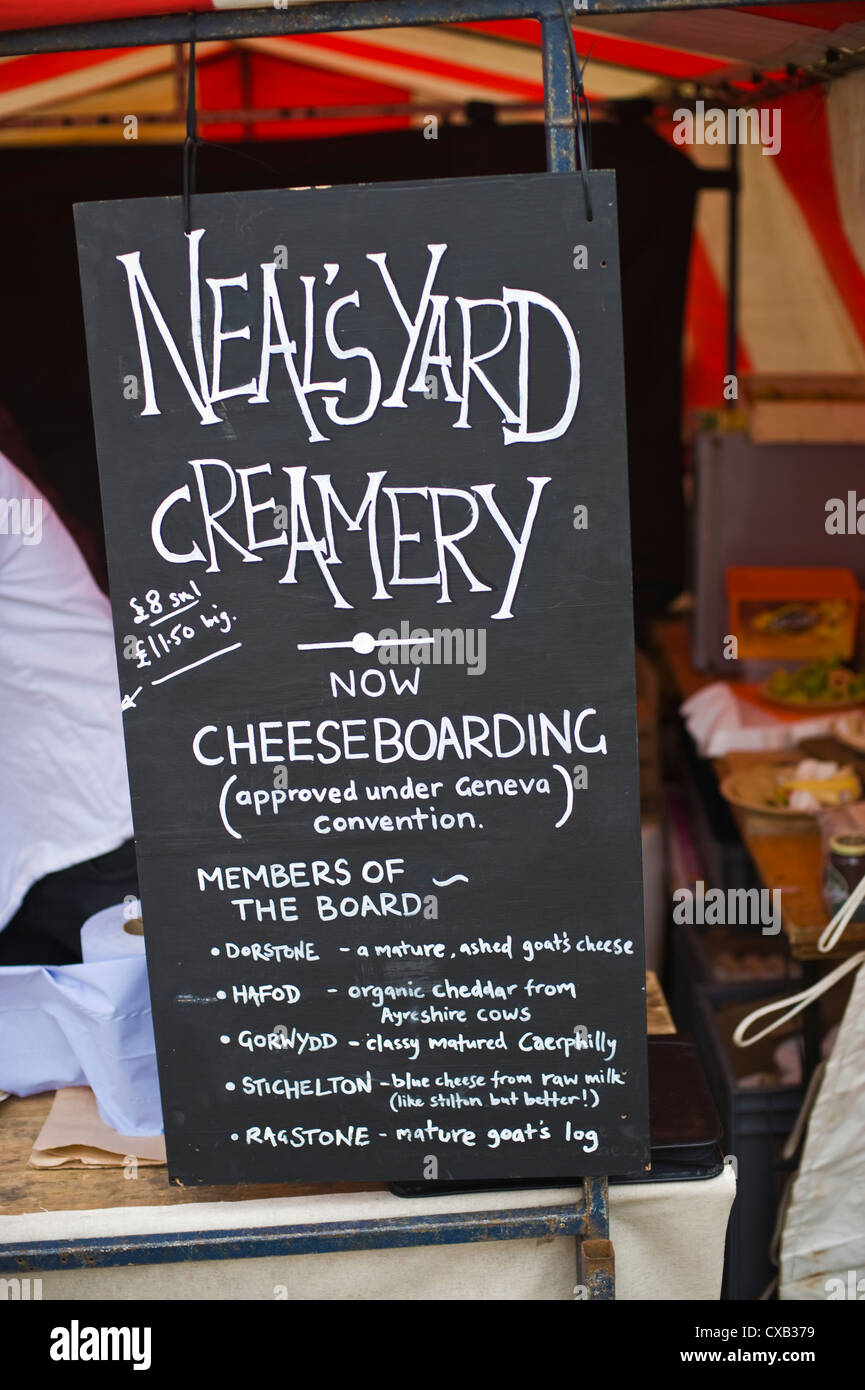 NEAL'S YARD
CREAMERY
£8 sml
£11.50 big.
NOW
CHEESEBOARDING
(approved under Geneva
convention.)
MEMBERS OF
THE BOARD ~
• DORSTONE - a mature, ashed goat's cheese
• HAFOD - organic cheddar from
Ayreshire cows
• GORWYDD - classy matured Caerphilly
• STICHELTON - blue cheese from raw milk
(like stilton but better!)
• RAGSTONE - mature goat's log
alamy
Image ID: CXB379
www.alamy.com